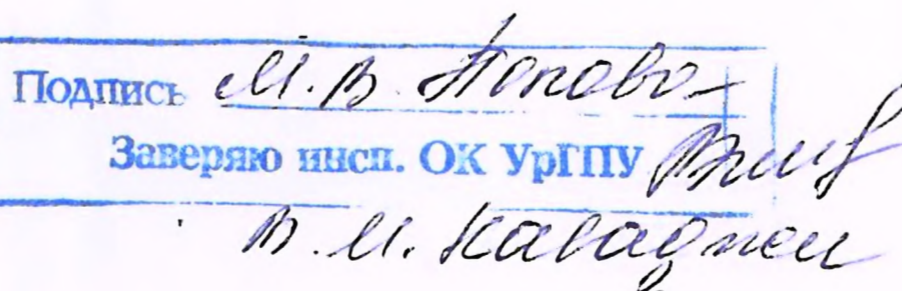 Подпись М. В. Попова
Заверяю инсп. ОК УрГПУ
В. М.